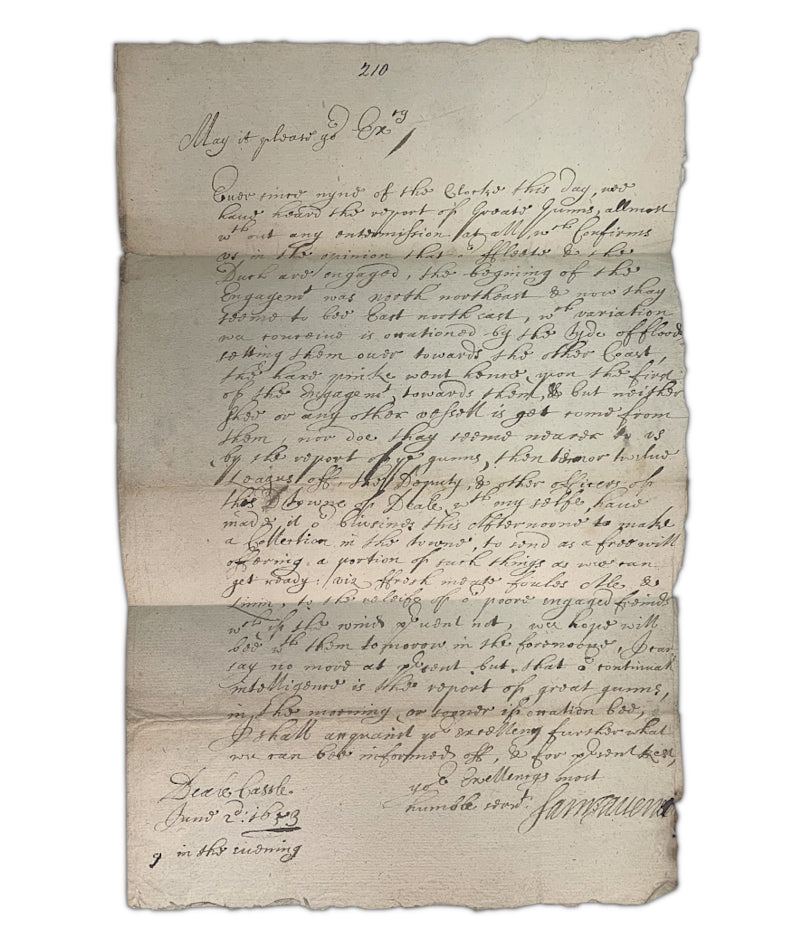 210
May it please yor Excy
Ever since nyne of the Clocke this day, wee
have heard the report of Greate Gunns, allmost
wthout any entermission at all, wch Confirms
us in the opinion that or ffleete & the
Duch are engaged, the begining of the
Engagemt was north northeast & now thay
seeme to bee East north east, wch variation
wee conceive is occationed by the tyde of flood
setting them over towards the other Coast,
the hare pincke went hence upon the first
of the engagemt, towards them, & but neither
shee or any other vessell is yet come from
them, nor doe thay seeme nearer to us
by the report of ye gunns, then ten or twelve
Leagus off, the Deputy, & other officers of
the Towne of Deale wth my selfe, have
made it or buisines this Afternoone to make
a Collection in the towne, to send as a free will
offering, a portion of such things as wee can
get ready: viz ffresh meate foules Ale &
linin, to the releife of or poore engaged freinds
wch if the wind prvent not, wee hope will
bee wth them tomorow in the forenoone, I can
say no more at prsent but that or continuall
intelligence is the report of great gunns,
in the morning or sooner if occation bee,
I shall acquaint yor excellency further what
wee can bee informed off, & for prsent rest,
yor Excellencys most
humble servt
Deale Castle
June 2d: 1653
9 in the evening